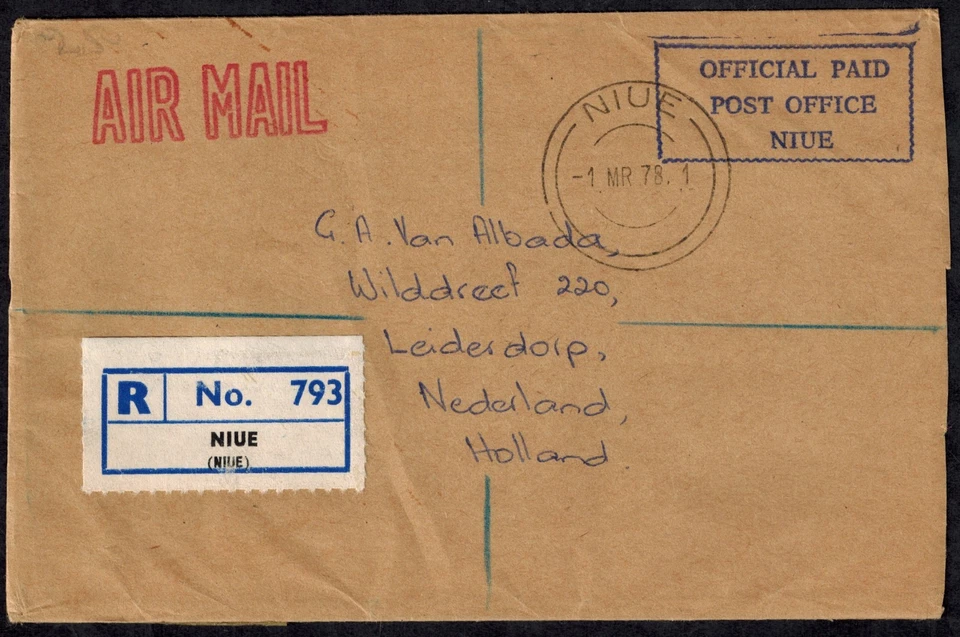 AIR MAIL
OFFICIAL PAID
POST OFFICE
NIUE
NIUE
-1 MR 78. 1
G. A. Van Albada,
Wilddreef 220,
Leiderdorp,
Nederland,
Holland.
R No. 793
NIUE
(NIUE)